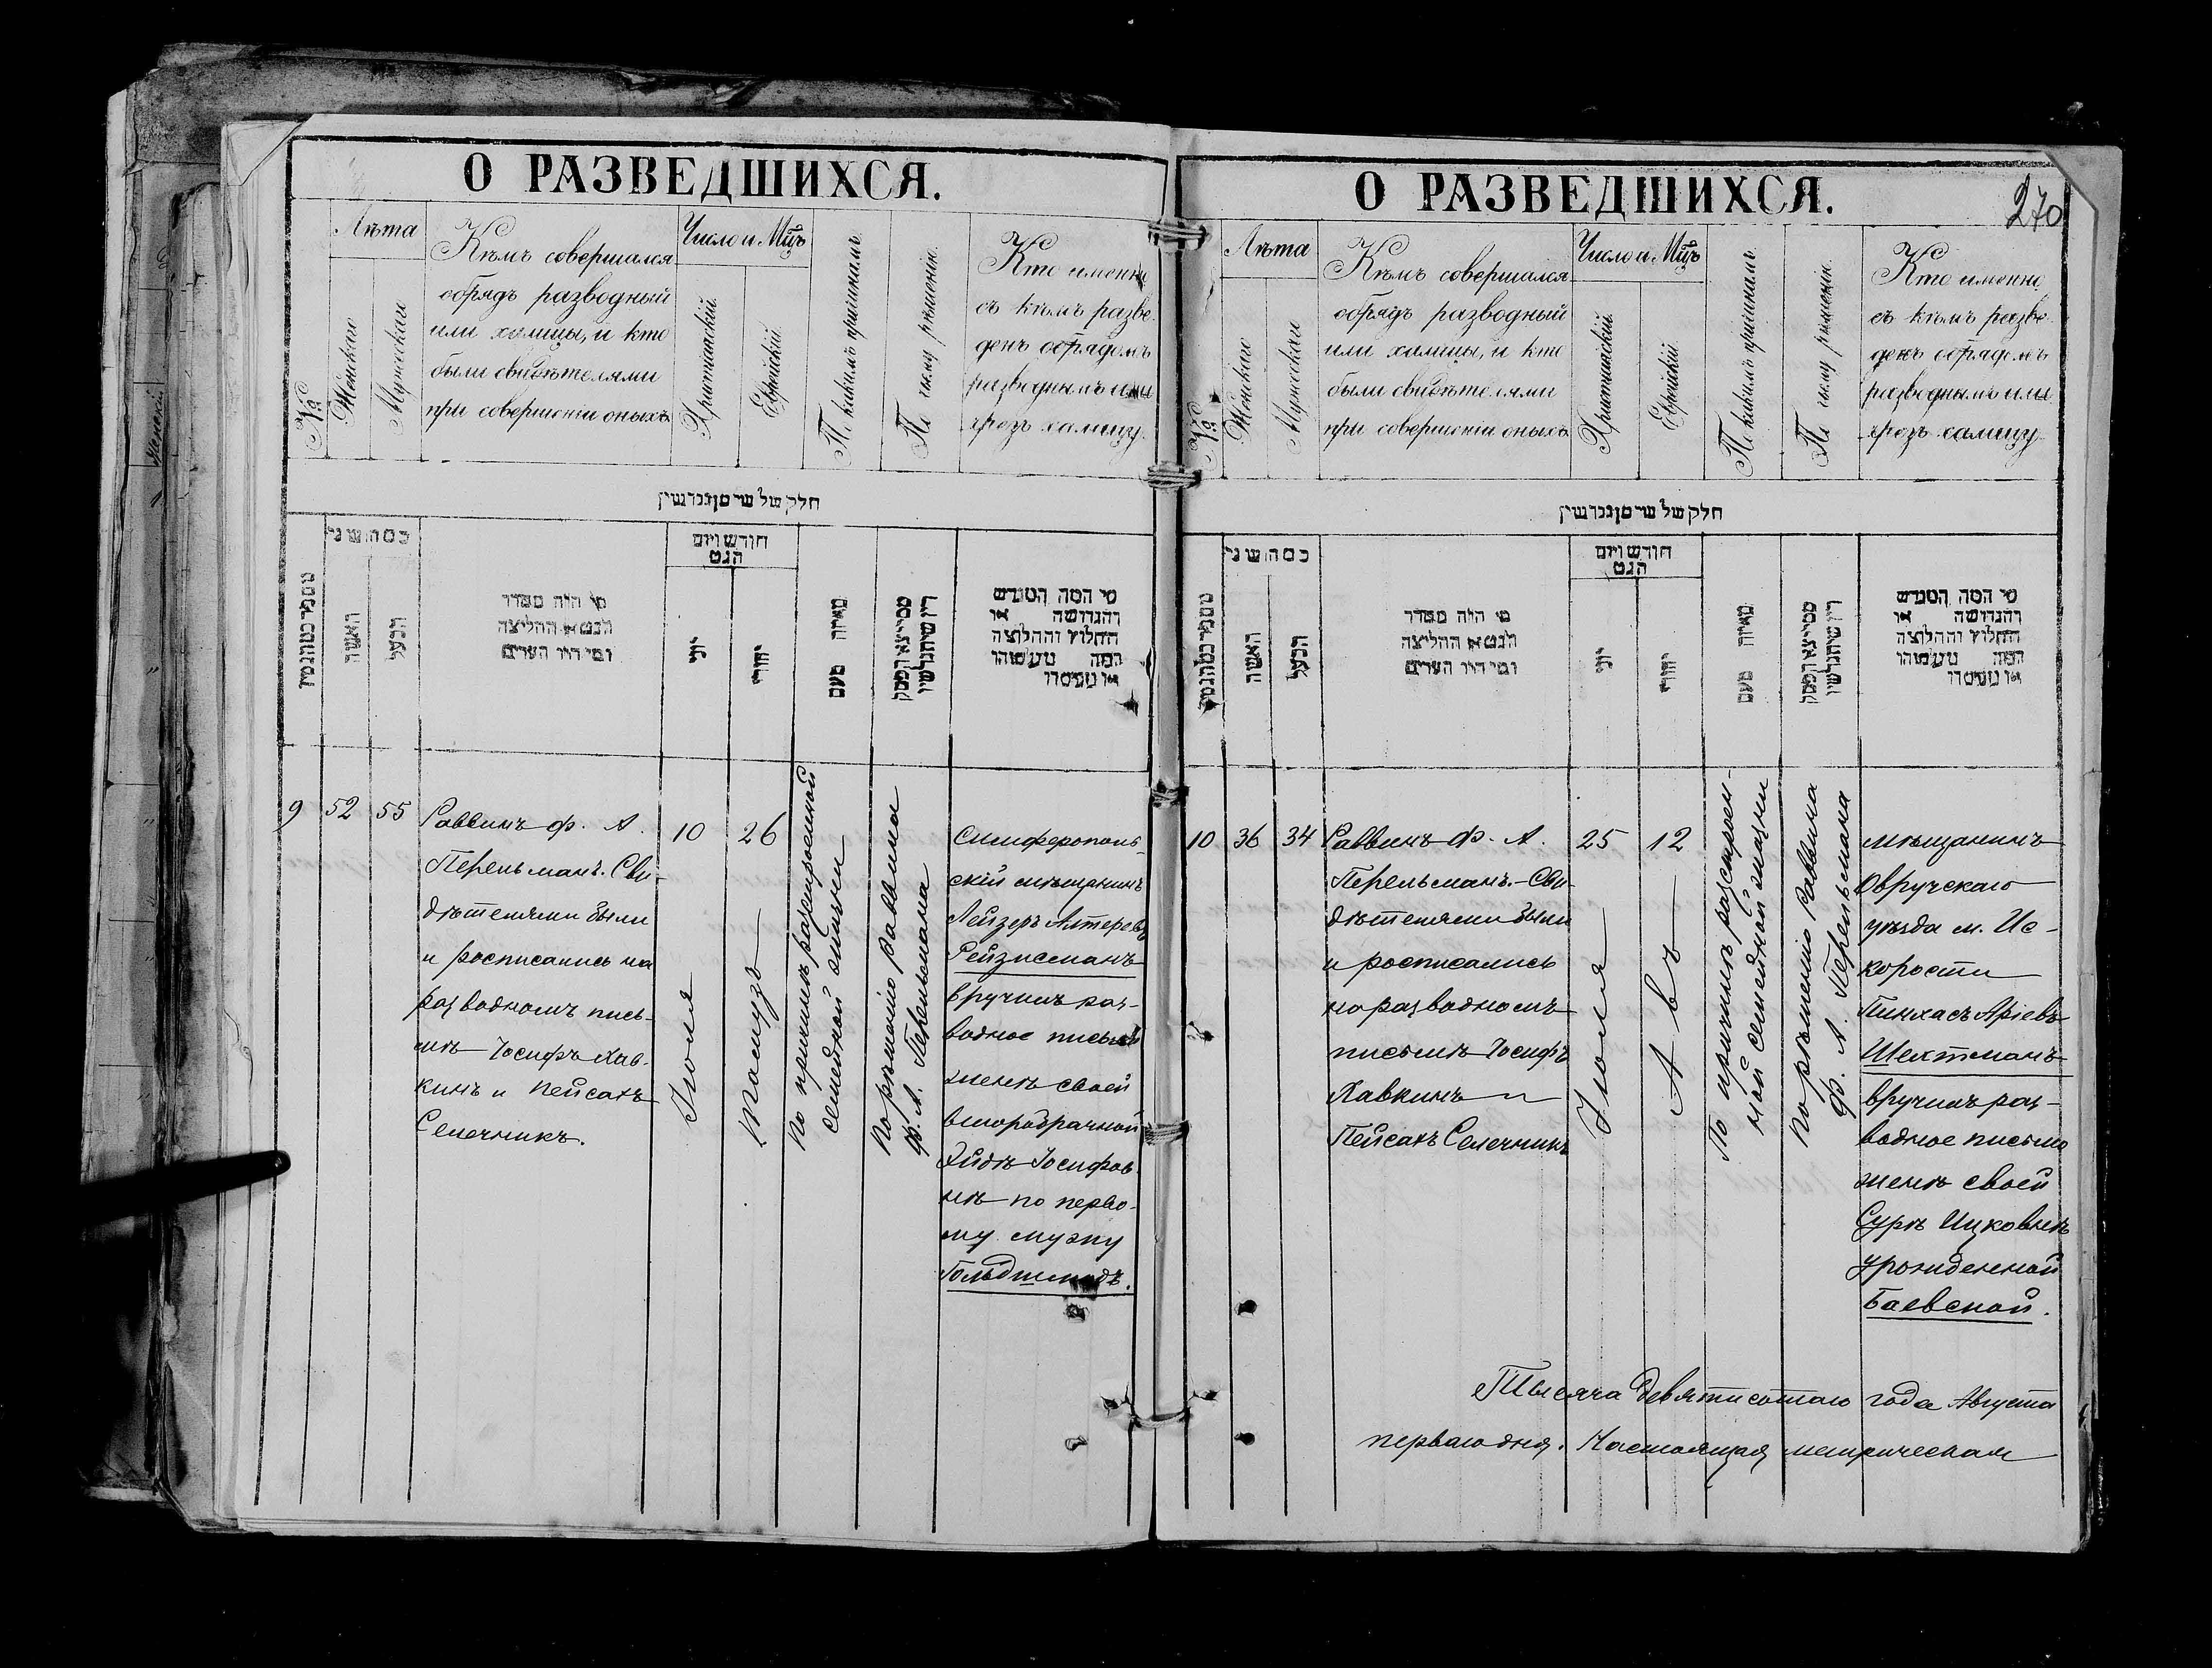 О РАЗВЕДШИХСЯ.
№
Лѣта
Женскаго
Мужескаго
Кѣмъ совершался
обрядъ разводный
или халицы, и кто
были свидѣтелями
при совершеніи оныхъ.
Число и Мцъ
Христіанскій
Еврейскій
По какимъ причинамъ
По чьему рѣшенію
Кто именно
съ кѣмъ разве-
денъ обрядомъ
разводнымъ или
чрезъ халицу.
חלק של
כמה שני
האשה
הבעל
מי היה מסדר
הגט או החליצה
ומי היו העדים
חודש ויום
הגט
יוני
יהודי
מאיזה טעם
או
החלוץ והחלוצה
9
52
55
Раввинъ Ф. А.
Перельманъ. Сви-
дѣтелями были
и росписались на
разводномъ пись-
мѣ Іосифъ Хав-
кинъ и Пейсахъ
Селечникъ.
10
Іюля
26
Тамузъ
По причинѣ разстроенной
семейной жизни
По рѣшенію раввина
Ф. А. Перельмана
Симферополь-
скій мѣщанинъ
Лейзеръ Алтеревъ
Рейзисманъ
вручилъ раз-
водное письмо
женѣ своей
второбрачной
Эйдѣ Іосифов-
нѣ по перво-
му мужу
Гольдшмидъ.
О РАЗВЕДШИХСЯ.
270
№
Лѣта
Женскаго
Мужескаго
Кѣмъ совершался
обрядъ разводный
или халицы, и кто
были свидѣтелями
при совершеніи оныхъ.
Число и Мцъ
Христіанскій
Еврейскій
По какимъ причинамъ
По чьему рѣшенію
Кто именно
съ кѣмъ разве-
денъ обрядомъ
разводнымъ или
чрезъ халицу.
חלק של
כמה שני
האשה
הבעל
מי היה מסדר
הגט או החליצה
ומי היו העדים
חודש ויום
הגט
יוני
יהודי
מאיזה טעם
או
החלוץ והחלוצה
10
36
34
Раввинъ Ф. А.
Перельманъ.-Сви-
дѣтелями были
и росписались
на разводномъ
письмѣ Іосифъ
Хавкинъ и
Пейсахъ Селечникъ
25
Іюля
12
Авъ
По причинѣ разстроен-
ной семейной жизни
По рѣшенію раввина
Ф. А. Перельмана
Мѣщанинъ
Овручскаго
уѣзда м. Ис-
корости
Пинхасъ Аріевъ
Шехтманъ
вручилъ раз-
водное письмо
женѣ своей
Сурѣ Ицковнѣ
урожденной
Баевской.
Тысяча девятисотаго года Августа
перваго дня. Настоящая метрическая